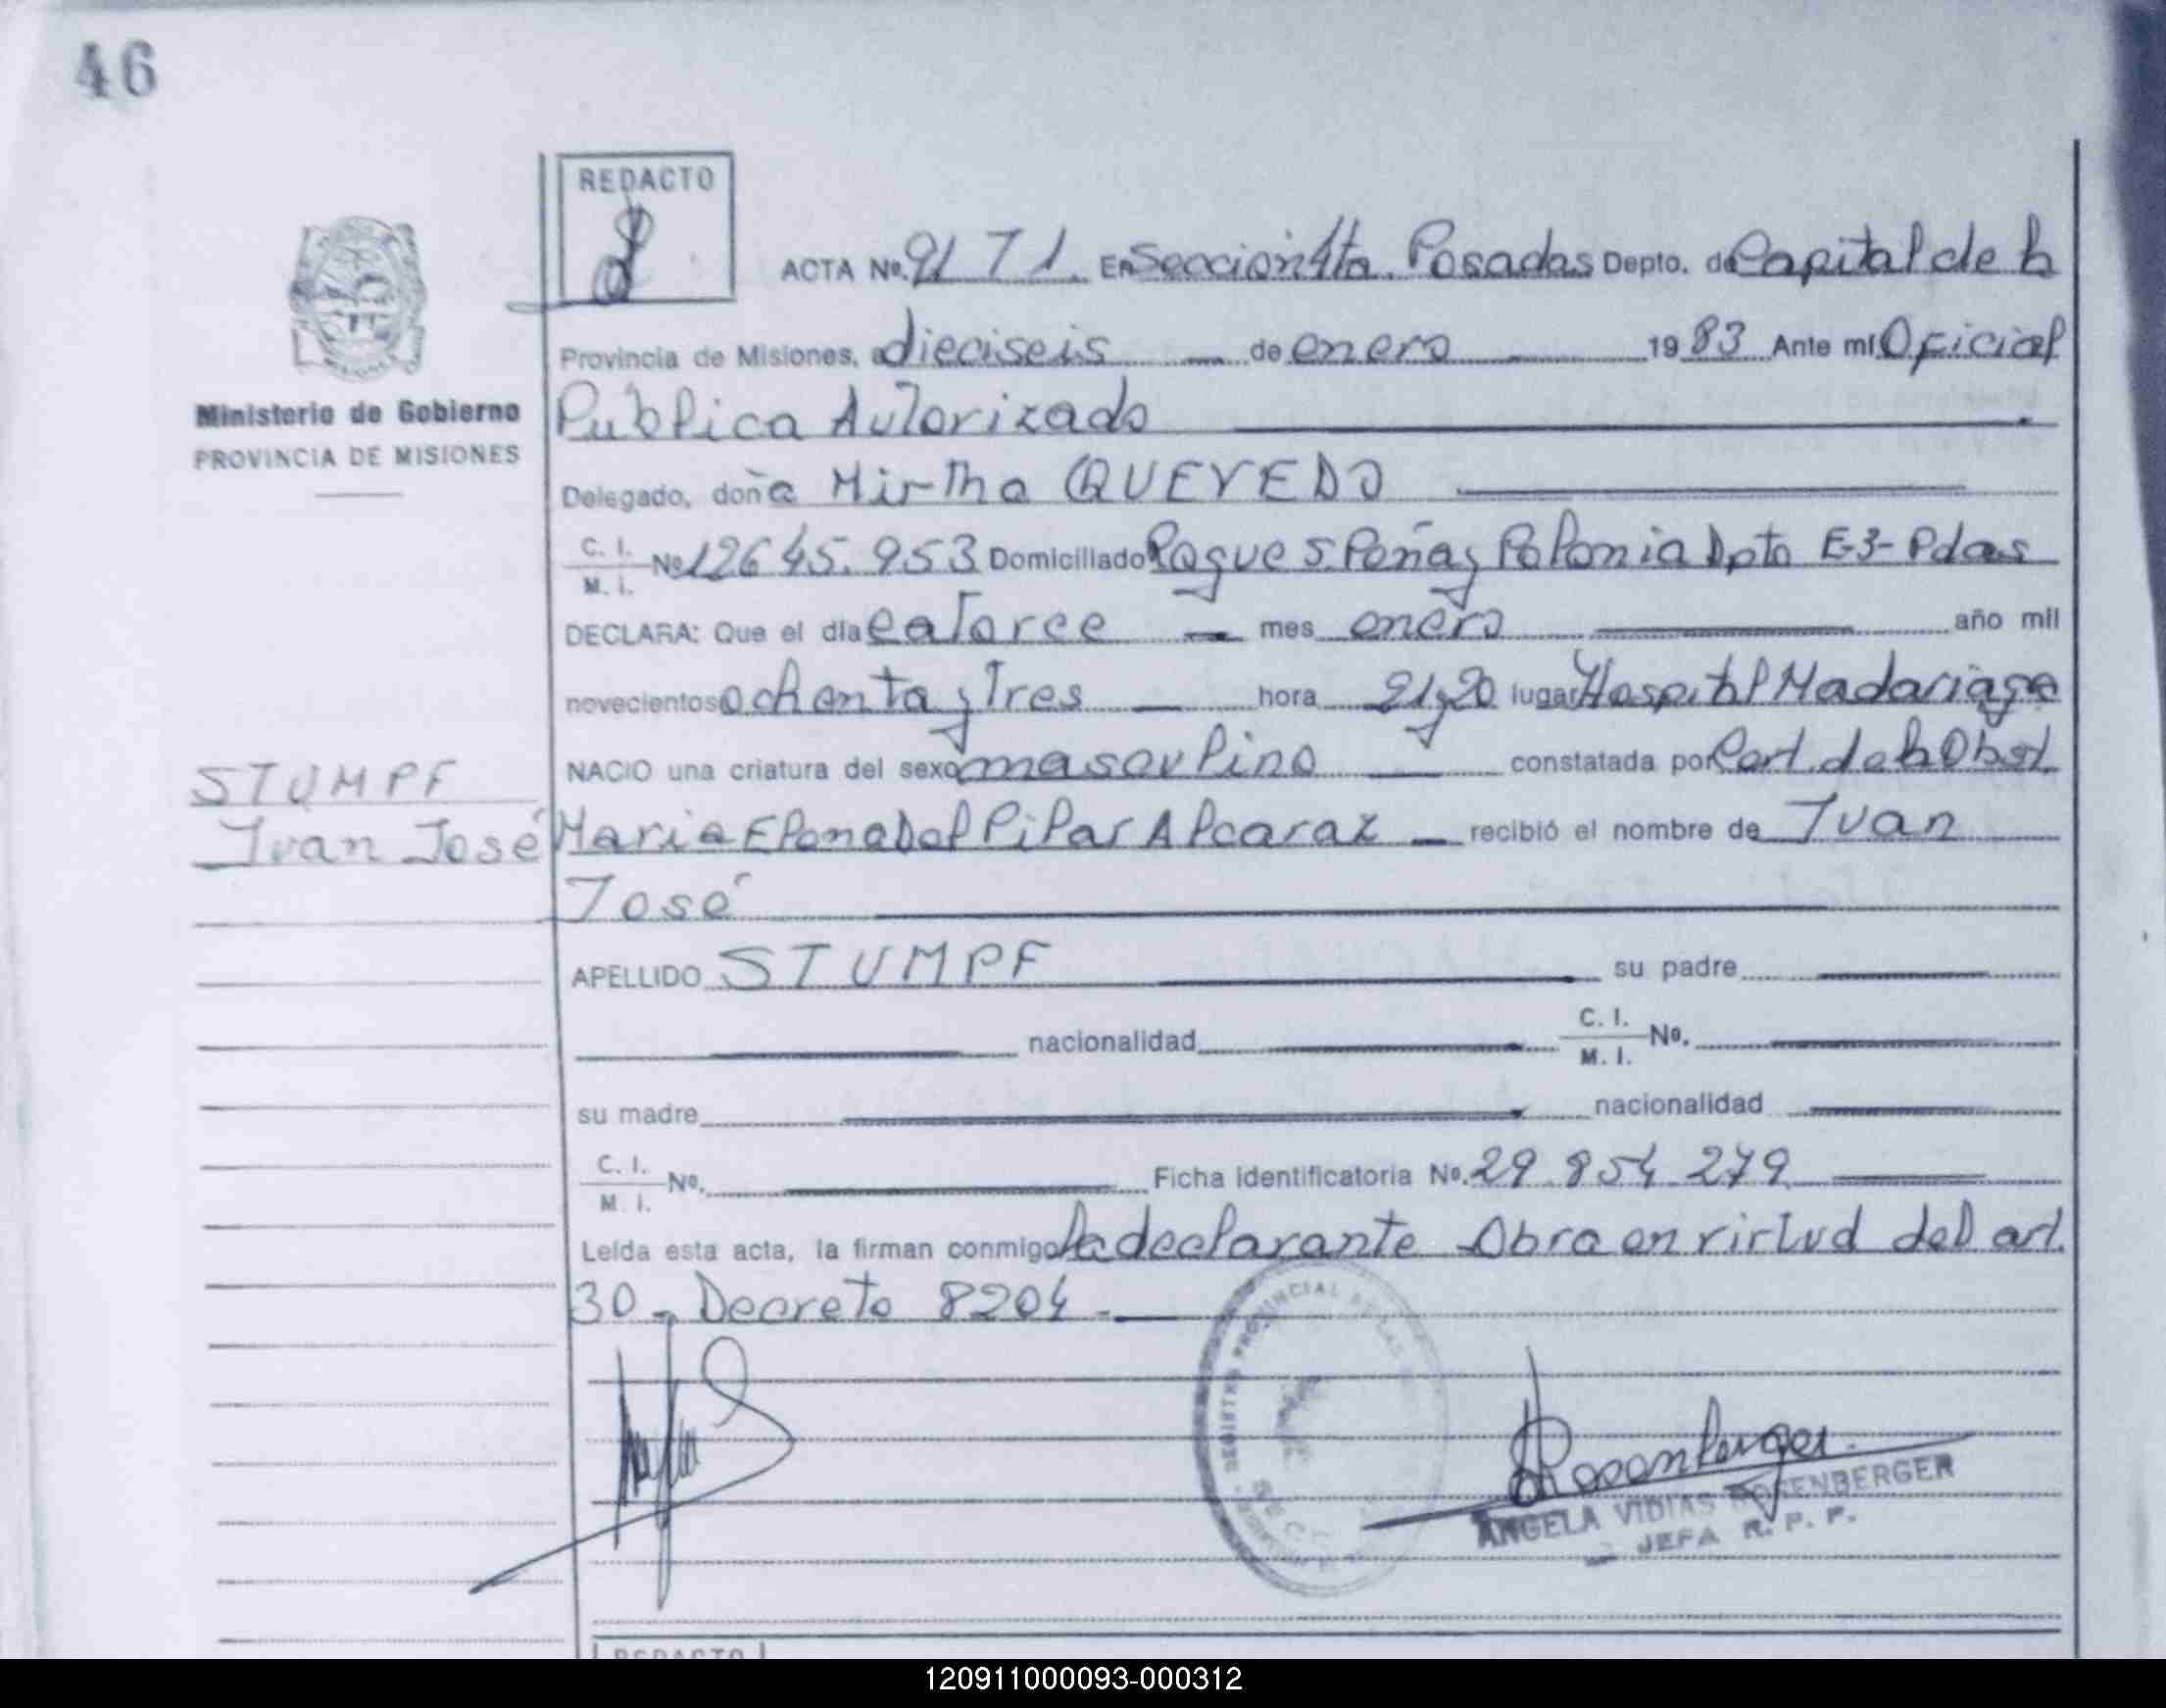 46
REDACTO
ACTA Nº. 91 T 1. En Sección 4ta. Posadas Depto. de Capital de la
Provincia de Misiones, a dieciseis de enero 1983 Ante mí Oficial
Ministerio de Gobierno
PROVINCIA DE MISIONES
Publica Autorizado
Delegado, doña Mirtha QUEVEDO
C. I.
M. I.
Nº 12645.953 Domiciliado Roque S. Peña y Polonia Dpto E-3- Pdas
DECLARA: Que el día catorce mes enero año mil
novecientos ochenta y Tres hora 21y20 lugar Hospital Madariaga
NACIO una criatura del sexo masculino constatada por Cert. de la Obst.
STUMPF
Ivan José
Maria Elena Del Pilar Alcaraz recibió el nombre de Ivan
José
APELLIDO STUMPF su padre
nacionalidad C. I.
M. I.
Nº.
su madre nacionalidad
C. I.
M. I.
Nº. Ficha identificatoria Nº. 29.854.279
Leída esta acta, la firman conmigo la declarante Obra en virtud del art.
30 - Decreto 8204.-
REGISTRO PROVINCIAL DE LAS
Rosenberger
ANGELA VIDIAS ROSENBERGER
JEFA R. P. P.
REDACTO
120911000093-000312